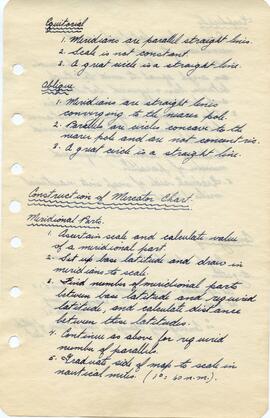 Equitorial
1. Meridians are parallel straight lines.
2. Scale is not constant.
3. A great circle is a straight line.
Oblique
1. Meridians are straight lines
converging to the nearer pole.
2. Parallels are circles concave to the
nearer pole and are not concentric.
3. A great circle is a straight line.
Construction of Mercator Chart.
Meridional Parts.
1. Ascertain scale and calculate value
of a meridional part.
2. Set up base latitude and draw in
meridians to scale.
3. Find number of meridional parts
between base latitude and required
latitude, and calculate distance
between these latitudes.
4. Continue as above for required
number of parallels.
5. Graduate side of map to scale in
nautical miles. (1°, 60 n.m.).